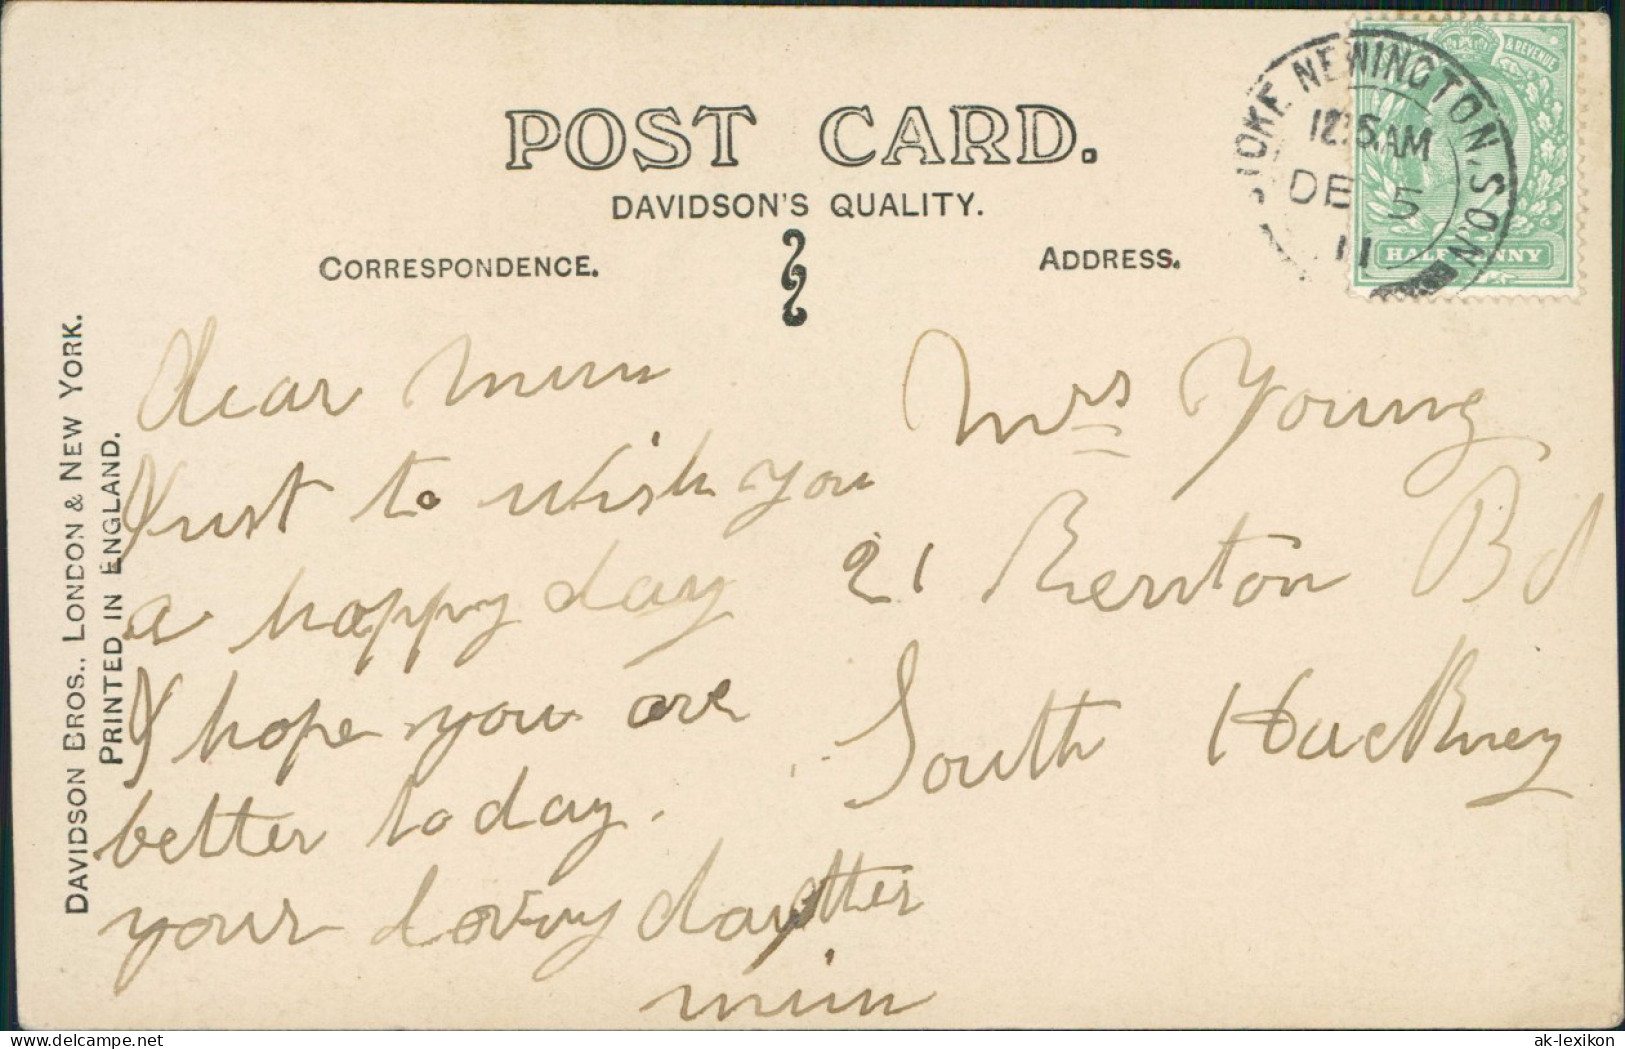 POST CARD.
DAVIDSON'S QUALITY.
CORRESPONDENCE.
ADDRESS.
STOKE NEWINGTON. S.O. N.
AM
DE 5
11
& REVENUE
HALFPENNY
DAVIDSON BROS., LONDON & NEW YORK.
PRINTED IN ENGLAND.
dear mum
Just to wish you
a happy day
I hope you are
better to day.
your loving daughter
min
Mrs Young
21
South Hackney
www.delcampe.net
ak-lexikon